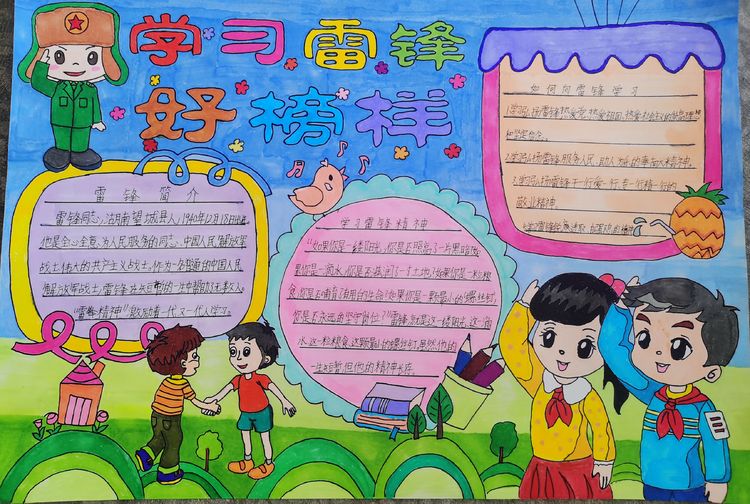 学习雷锋
好榜样
雷锋简介
雷锋同志,湖南望城县人,1940年12月18日出生
他是全心全意为人民服务的同志,中国人民解放军
战士,伟大的共产主义战士,作为一名普通的中国人民
解放军战士,雷锋在
一生中帮助无数人。
"雷锋精神"激励着一代又一代人学习。
学习雷锋精神
"如果你是一缕阳光,你是否照亮了一片黑暗?如
果你是一滴水,你是否滋润了一寸土地?如果你是一粒粮
食,你是否哺育了有用的生命?如果你是一颗最小的螺丝钉,
你是否永远的坚守岗位?"雷锋就是这一缕阳光,这一滴
水,这一粒粮食,这颗最小的螺丝钉,虽然他的
一生短暂,但他的精神长存。
如何向雷锋学习
1学习弘扬雷锋热爱党,热爱祖国,热爱社会主义的崇高理想
和坚定信念。
2学习弘扬雷锋服务人民,助人为乐的奉献精神。
3学习弘扬雷锋干一行爱一行,专一行精一行的
敬业精神